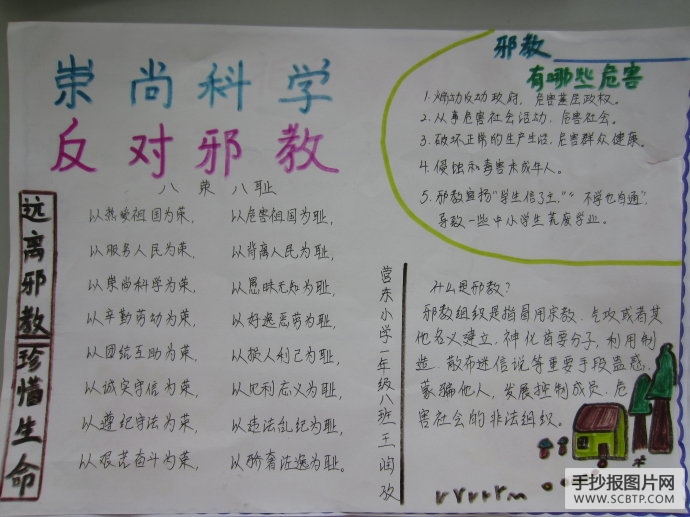 崇尚科学
反对邪教
八荣八耻
以热爱祖国为荣，以危害祖国为耻，
以服务人民为荣，以背离人民为耻，
以崇尚科学为荣，以愚昧无知为耻，
以辛勤劳动为荣，以好逸恶劳为耻，
以团结互助为荣，以损人利己为耻，
以诚实守信为荣，以见利忘义为耻，
以遵纪守法为荣，以违法乱纪为耻，
以艰苦奋斗为荣，以骄奢淫逸为耻。
远离邪教珍惜生命
邪教
有哪些危害
1. 煽动反动政府，危害基层政权。
2. 从事危害社会活动，危害社会。
3. 破坏正常的生产生活，危害群众健康。
4. 侵蚀和毒害未成年人。
5. 邪教宣扬“学生信了主，”“不学也自通”，
导致一些中小学生荒废学业。
营东小学一年级八班王润孜
什么是邪教？
邪教组织是指冒用宗教、气功或者其
他名义建立，神化首要分子，利用制
造、散布迷信说等重要手段蛊惑，
蒙骗他人，发展控制成员，危
害社会的非法组织。
手抄报图片网
WWW.SCBTP.COM